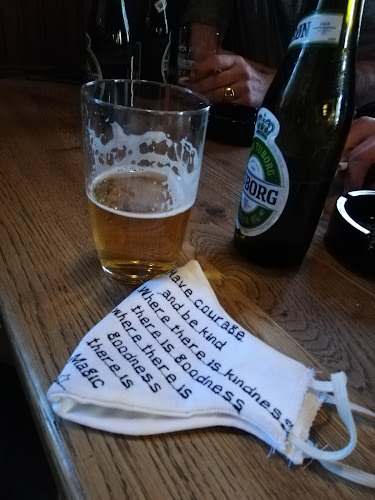 Have courage
and be kind
Where there is kindness
there is goodness
where there is
goodness
there is
Magic
TUBORG
BORG